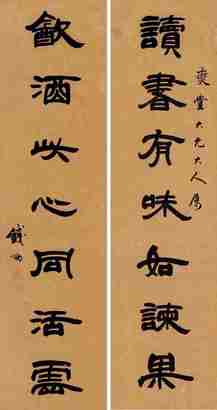 堂大兄大人屬
讀書有味如諫果
飲酒此心同活雲
錢